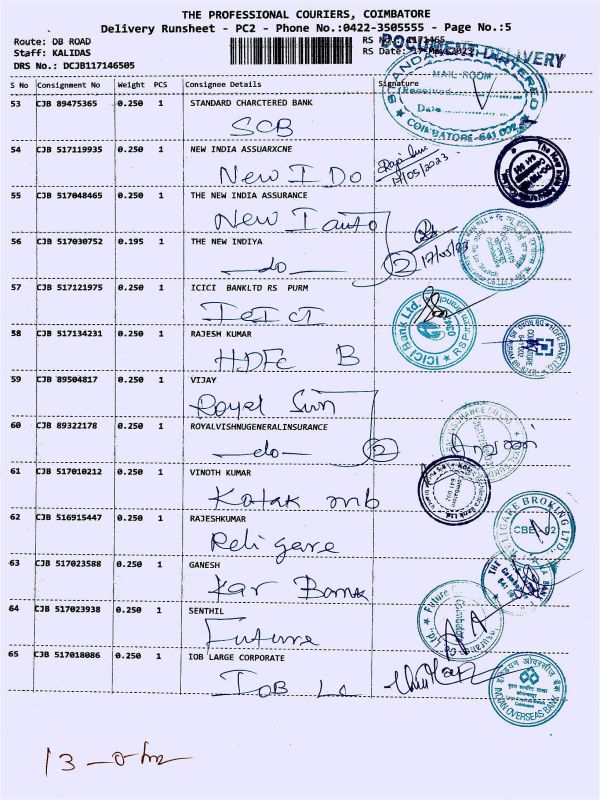 THE PROFESSIONAL COURIERS, COIMBATORE
Delivery Runsheet - PC2 - Phone No.:0422-3505555 - Page No.:5
Route: DB ROAD
RS No.: 1171465
Staff: KALIDAS
RS Date: 17-May-2023
DOCUMENT DELIVERY
DRS No.: DCJB117146505
S No Consignment No Weight PCS Consignee Details Signature
53 CJB 89475365 0.250 1 STANDARD CHARCTERED BANK
SCB
MAIL ROOM
Received
Date
COIMBATORE-641 002
54 CJB 517119935 0.250 1 NEW INDIA ASSUARXCNE
New I Do
17/05/2023
55 CJB 517048465 0.250 1 THE NEW INDIA ASSURANCE
New I auto
56 CJB 517030752 0.195 1 THE NEW INDIYA
-do- 2
17/05/23
57 CJB 517121975 0.250 1 ICICI BANKLTD RS PURM
ICICI
ICICI Bank Ltd.
58 CJB 517134231 0.250 1 RAJESH KUMAR
HDFC B
59 CJB 89504817 0.250 1 VIJAY
Royal Sun
60 CJB 89322178 0.250 1 ROYALVISHNUGENERALINSURANCE
-do- 2
61 CJB 517010212 0.250 1 VINOTH KUMAR
Kotak mb
62 CJB 516915447 0.250 1 RAJESHKUMAR
Religare
RELIGARE BROKING LTD.
CBE 02
63 CJB 517023588 0.250 1 GANESH
Kar Bank
64 CJB 517023938 0.250 1 SENTHIL
Future
65 CJB 517018086 0.250 1 IOB LARGE CORPORATE
IOB La
इण्डियन ओवरसीज़ बैंक
INDIAN OVERSEAS BANK
13